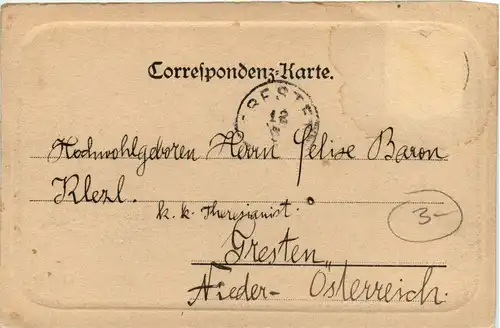 Correspondenz-Karte.
GRESTEN
12
Hochwohlgeboren Herrn Felix Baron
Klezl.
k. k. Theresianist.
3-
Gresten"
Nieder- Österreich.